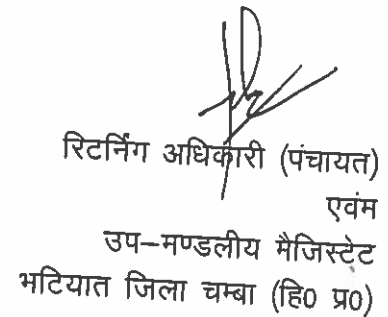 रिटर्निंग अधिकारी (पंचायत)
एवंम
उप-मण्डलीय मैजिस्ट्रेट
भटियात जिला चम्बा (हि0 प्र0)